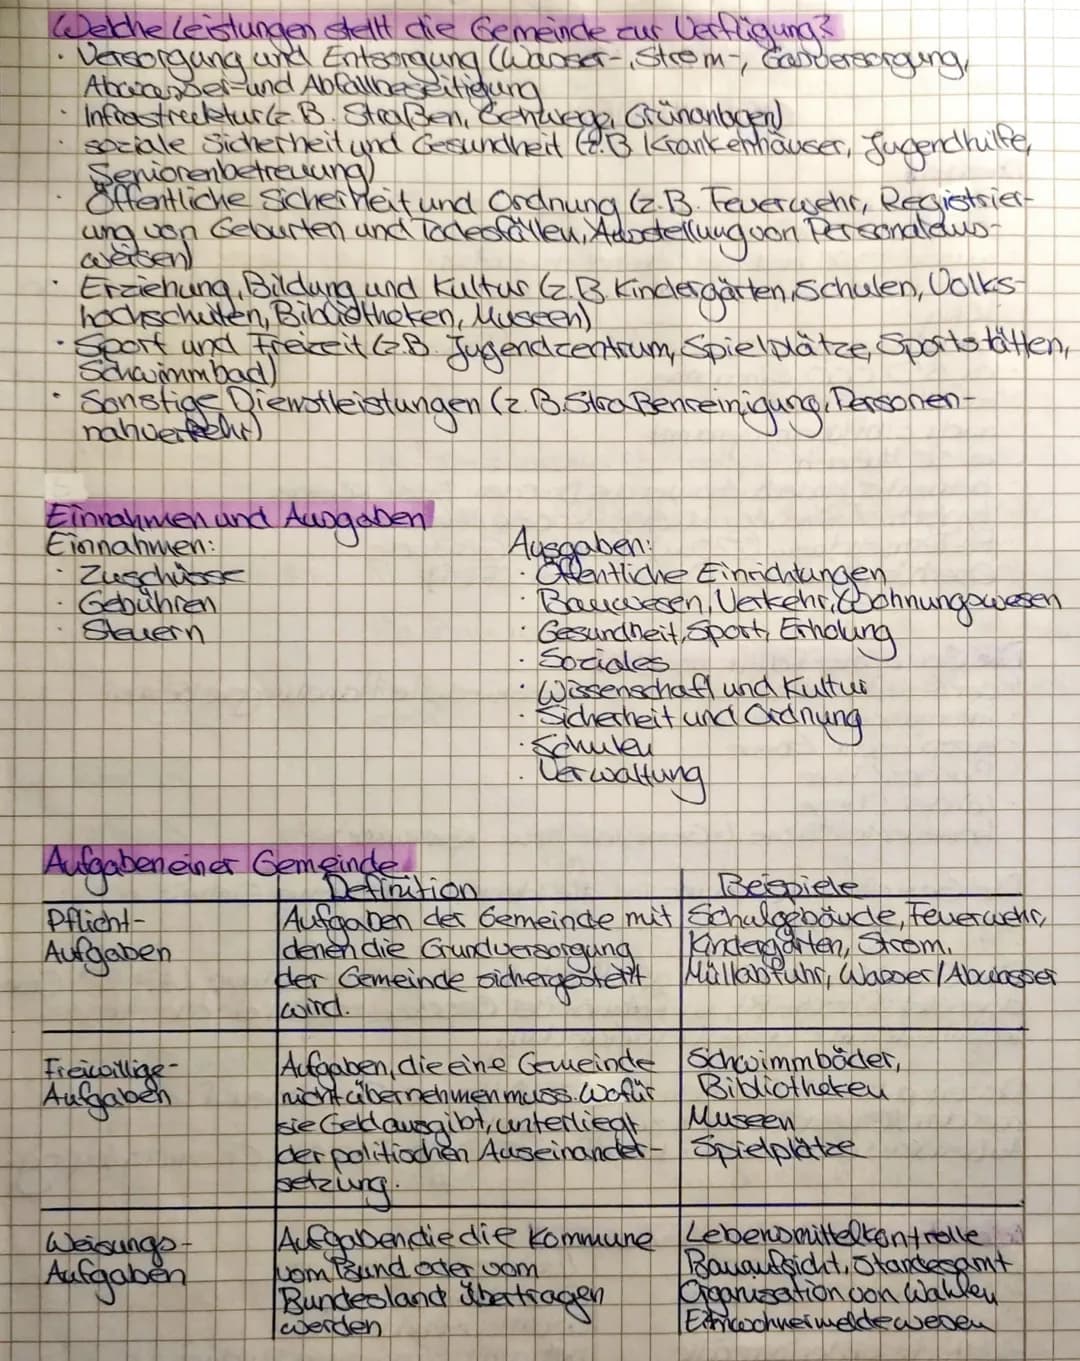 Welche Leistungen stellt die Gemeinde zur Verfügung?
· Versorgung und Entsorgung (Wasser-, Strom-, Gasversorgung,
Abwasser- und Abfallbeseitigung
· Infrastrucktur (z.B. Straßen, Gehwege, Grünanlagen)
· soziale Sicherheit und Gesundheit (z.B Krankenhäuser, Jugendhilfe,
Seniorenbetreuung)
· Öffentliche Sicherheit und Ordnung (z.B. Feuerwehr, Registrier-
ung von Geburten und Todesfällen, Ausstellung von Personalaus-
weisen)
· Erziehung, Bildung und Kultur (z.B. Kindergärten, Schulen, Volks-
hochschulen, Bibliotheken, Museen)
· Sport und Freizeit (z.B. Jugendzentrum, Spielplätze, Sportstätten,
Schwimmbad)
· Sonstige Dienstleistungen (z.B. Straßenreinigung, Personen-
nahverkehr)
Einnahmen und Ausgaben
Einnahmen:
· Zuschüsse
· Gebühren
· Steuern
Ausgaben:
· Öffentliche Einrichtungen
· Bauwesen, Verkehr, Wohnungswesen
· Gesundheit, Sport, Erholung
· Soziales
· Wissenschaft und Kultur
· Sicherheit und Ordnung
· Schulen
· Verwaltung
Aufgaben einer Gemeinde
Definition Beispiele
Pflicht-
Aufgaben
Aufgaben der Gemeinde mit
denen die Grundversorgung
der Gemeinde sichergestellt
wird.
Schulgebäude, Feuerwehr,
Kindergärten, Strom,
Müllabfuhr, Wasser/Abwasser
Freiwillige-
Aufgaben
Aufgaben, die eine Gemeinde
nicht übernehmen muss. Wofür
sie Geld ausgibt, unterliegt
der politischen Auseinander-
setzung.
Schwimmbäder,
Bibliotheken
Museen
Spielplätze
Weisungs-
Aufgaben
Aufgaben die die Kommune
vom Bund oder vom
Bundesland übertragen
werden
Lebensmittelkontrolle
Bauaufsicht, Standesamt
Organisation von Wahlen
Einwohnermeldewesen